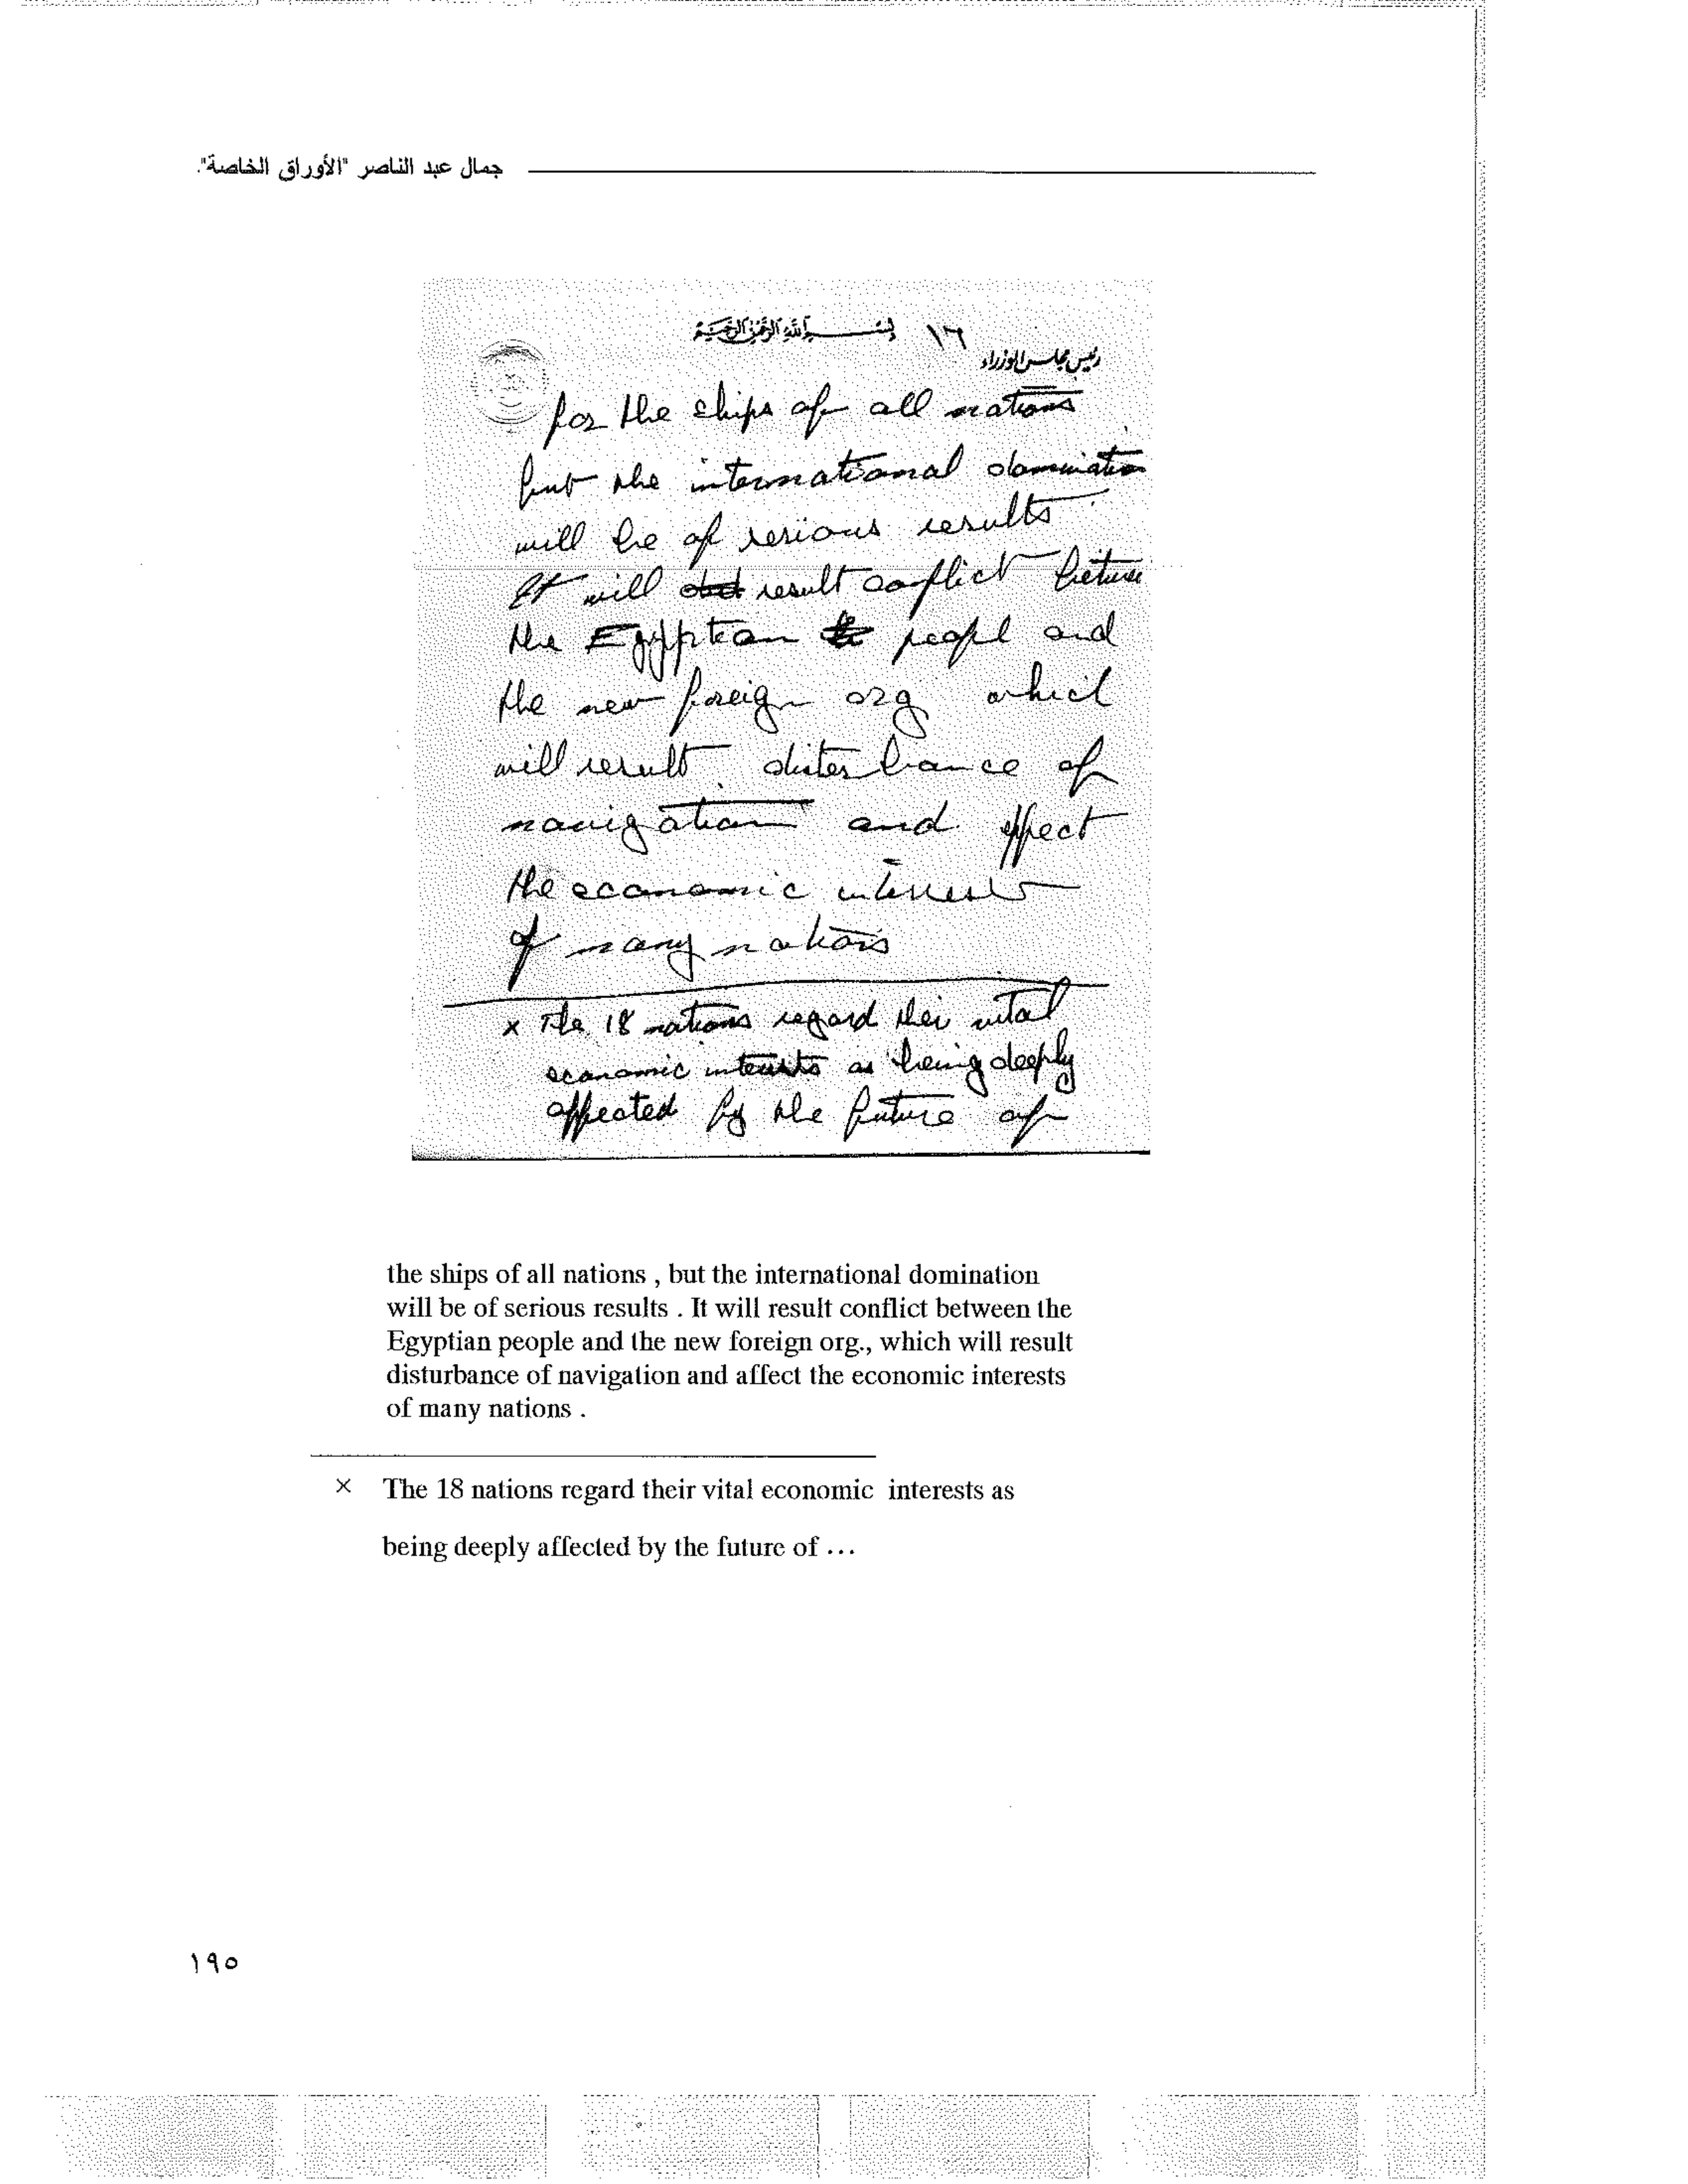 جمال عبد الناصر "الأوراق الخاصة".
بسم الله الرحمن الرحيم ١٦
رئيس مجلس الوزراء
for the ships of all nations
but the international domination
will be of serious results
It will result conflict betwee
the Egyptian peopl and
the new foreign org which
will result disterbance of
navigation and effect
the economic interests
of many nations
x The 18 nations regard their vital
economic interests as being deeply
affected by the future of
the ships of all nations , but the international domination
will be of serious results . It will result conflict between the
Egyptian people and the new foreign org., which will result
disturbance of navigation and affect the economic interests
of many nations .
× The 18 nations regard their vital economic interests as
being deeply affected by the future of ...
١٩٥